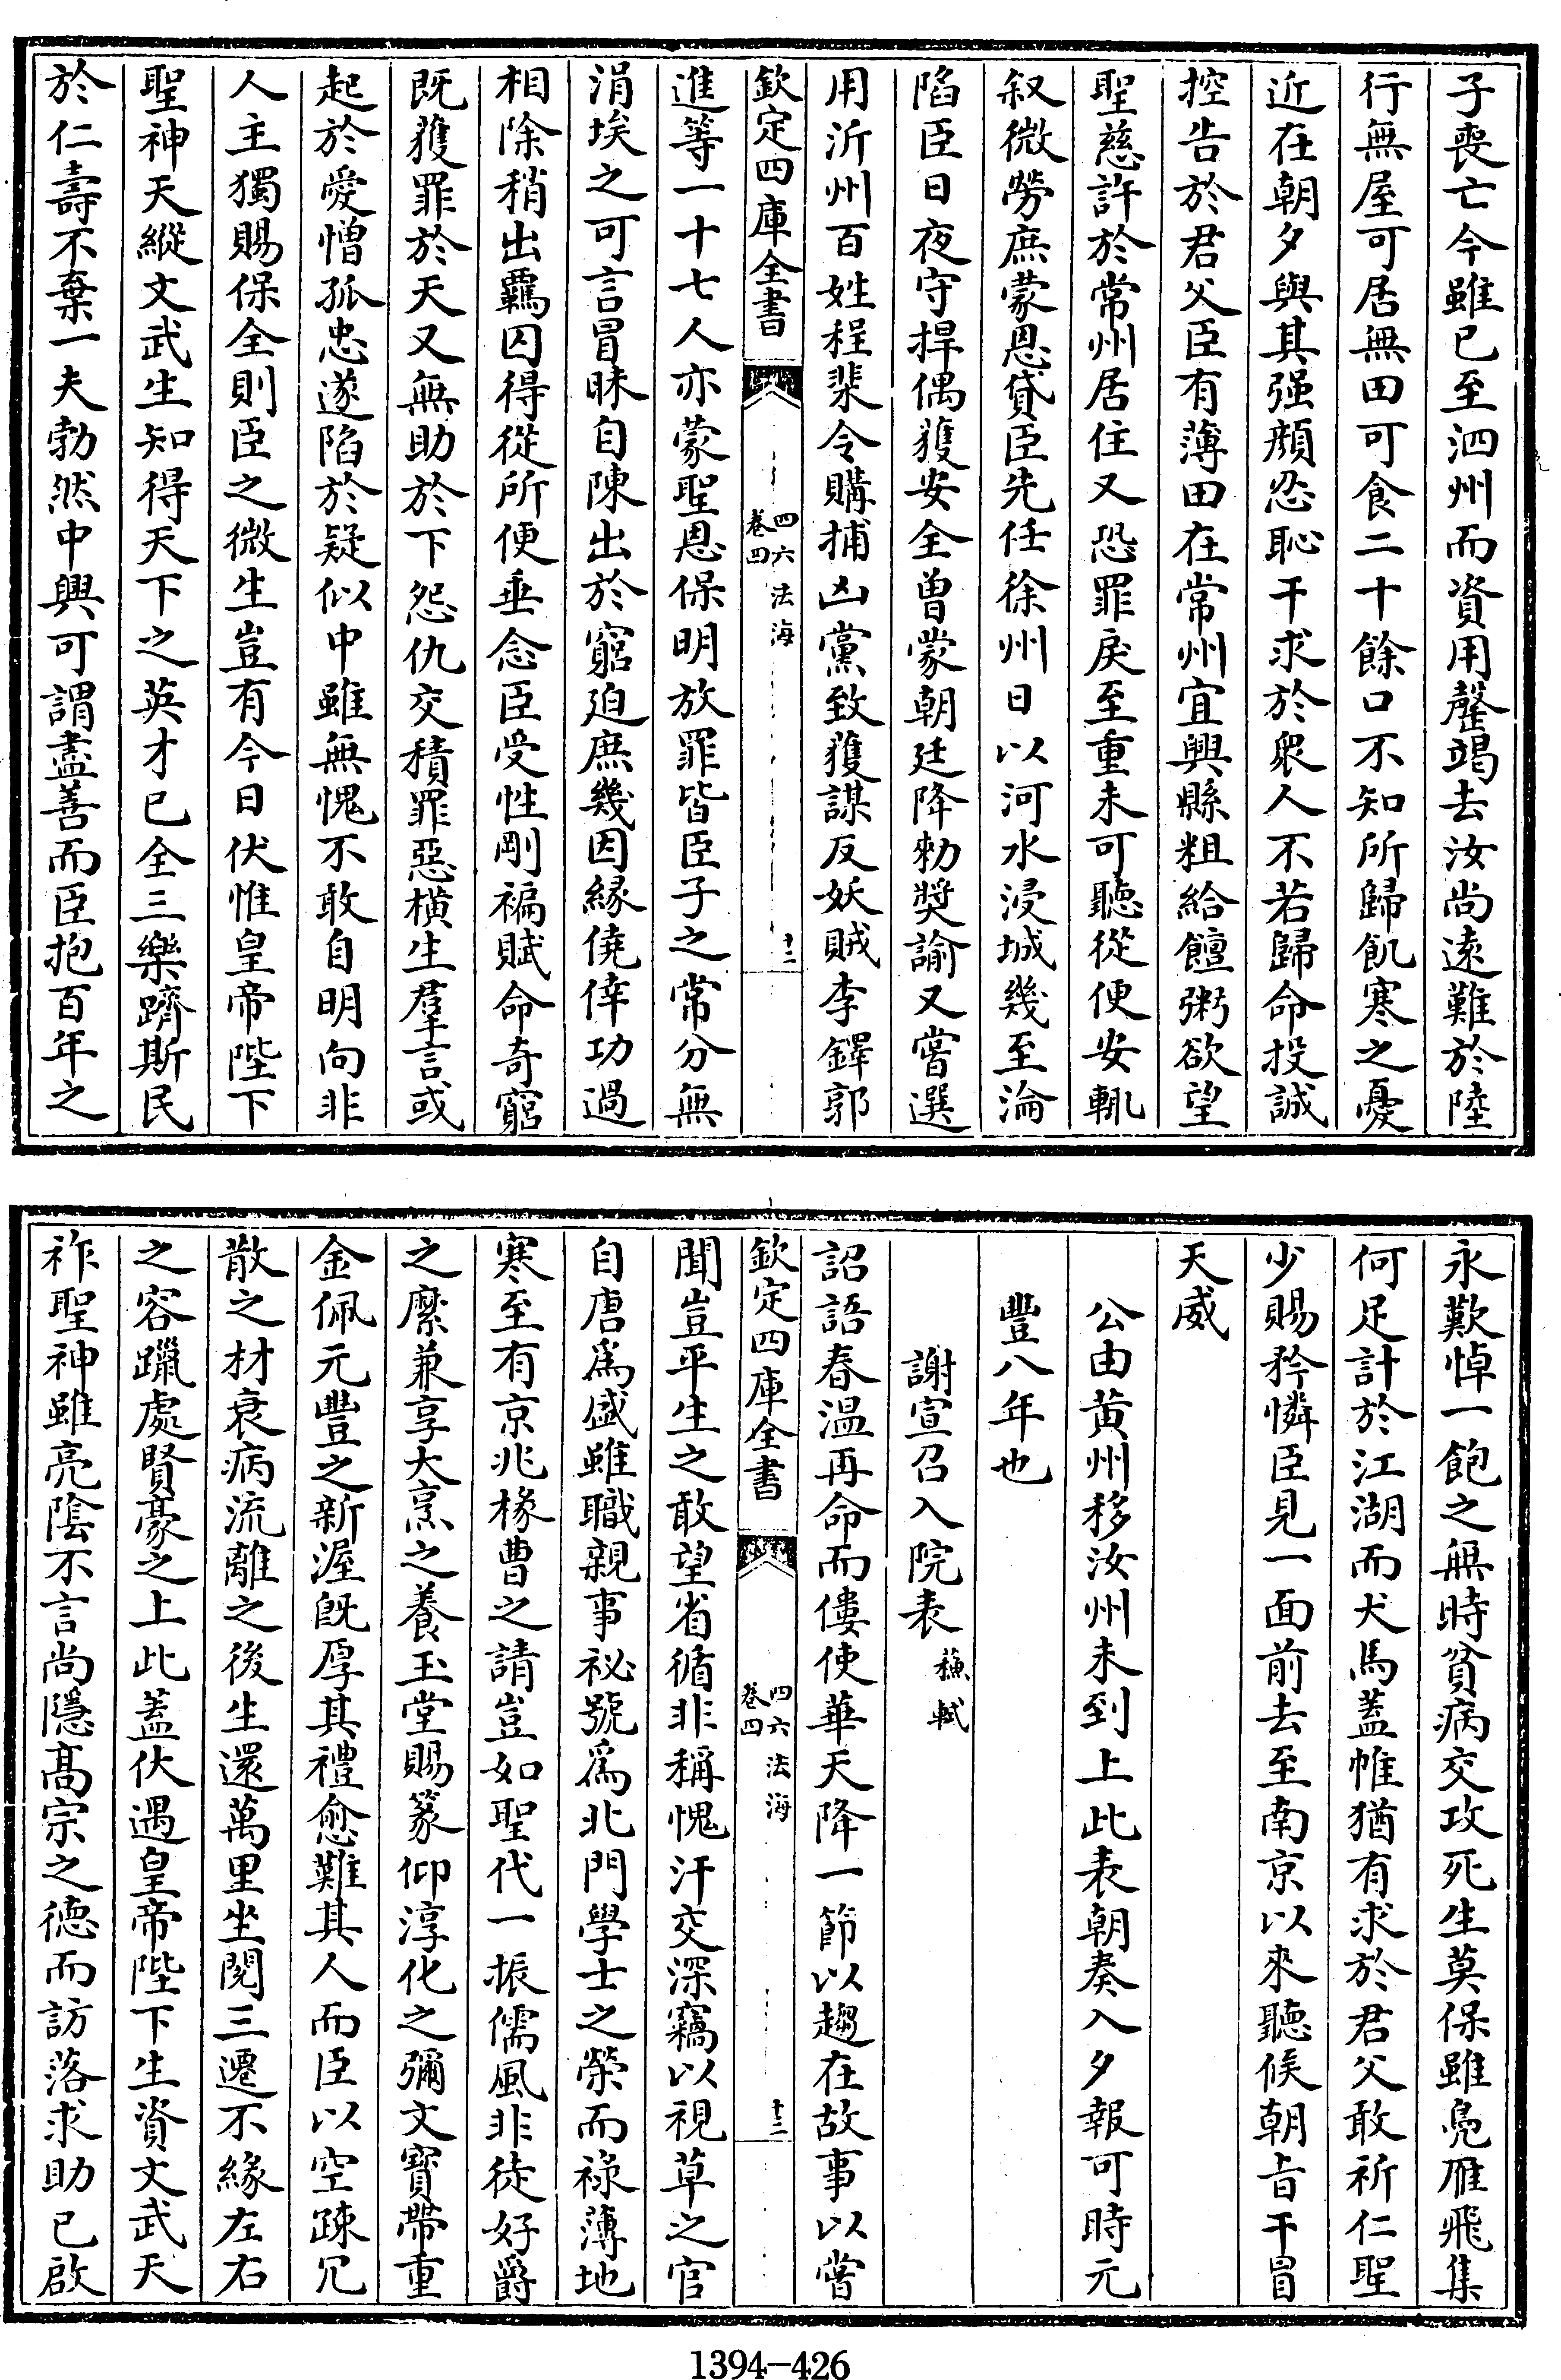 子喪亡今雖已至泗州而資用罄竭去汝尚遠難於陸
行無屋可居無田可食二十餘口不知所歸飢寒之憂
近在朝夕與其强顔忍恥干求於衆人不若歸命投誠
控告於君父臣有薄田在常州宜興縣粗給饘粥欲望
聖慈許於常州居住又恐罪戾至重未可聽從便安輒
叙微勞庶蒙恩貸臣先任徐州日以河水浸城幾至淪
陷臣日夜守捍偶獲安全曽蒙朝廷降勑奬諭又嘗選
用沂州百姓程棐令購捕凶黨致獲謀反妖賊李鐸郭
欽定四庫全書
四六法海
卷四
十二
進等一十七人亦蒙聖恩保明放罪皆臣子之常分無
涓埃之可言冒昧自陳出於窮迫庶幾因緣僥倖功過
相除稍出羈囚得從所便垂念臣受性剛褊賦命奇窮
既獲罪於天又無助於下怨仇交積罪惡橫生羣言或
起於愛憎孤忠遂陷於疑似中雖無愧不敢自明向非
人主獨賜保全則臣之微生豈有今日伏惟皇帝陛下
聖神天縱文武生知得天下之英才已全三樂躋斯民
於仁壽不棄一夫勃然中興可謂盡善而臣抱百年之
永歎悼一飽之無時貧病交攻死生莫保雖鳧雁飛集
何足計於江湖而犬馬蓋帷猶有求於君父敢祈仁聖
少賜矜憐臣見一面前去至南京以來聽候朝旨干冒
天威
公由黄州移汝州未到上此表朝奏入夕報可時元
豐八年也
謝宣召入院表 蘇軾
詔語春温再命而僂使華天降一節以趨在故事以嘗
欽定四庫全書
四六法海
卷四
十三
聞豈平生之敢望省循非稱愧汗交深竊以視草之官
自唐爲盛雖職親事祕號爲北門學士之榮而祿薄地
寒至有京兆椽曹之請豈如聖代一振儒風非徒好爵
之縻兼享大烹之養玉堂賜篆仰淳化之彌文寳帶重
金佩元豐之新渥旣厚其禮愈難其人而臣以空疎冗
散之材衰病流離之後生還萬里坐閱三遷不緣左右
之容躐處賢豪之上此蓋伏遇皇帝陛下生資文武天
祚聖神雖亮陰不言尚隱髙宗之德而訪落求助已啟
1394-426